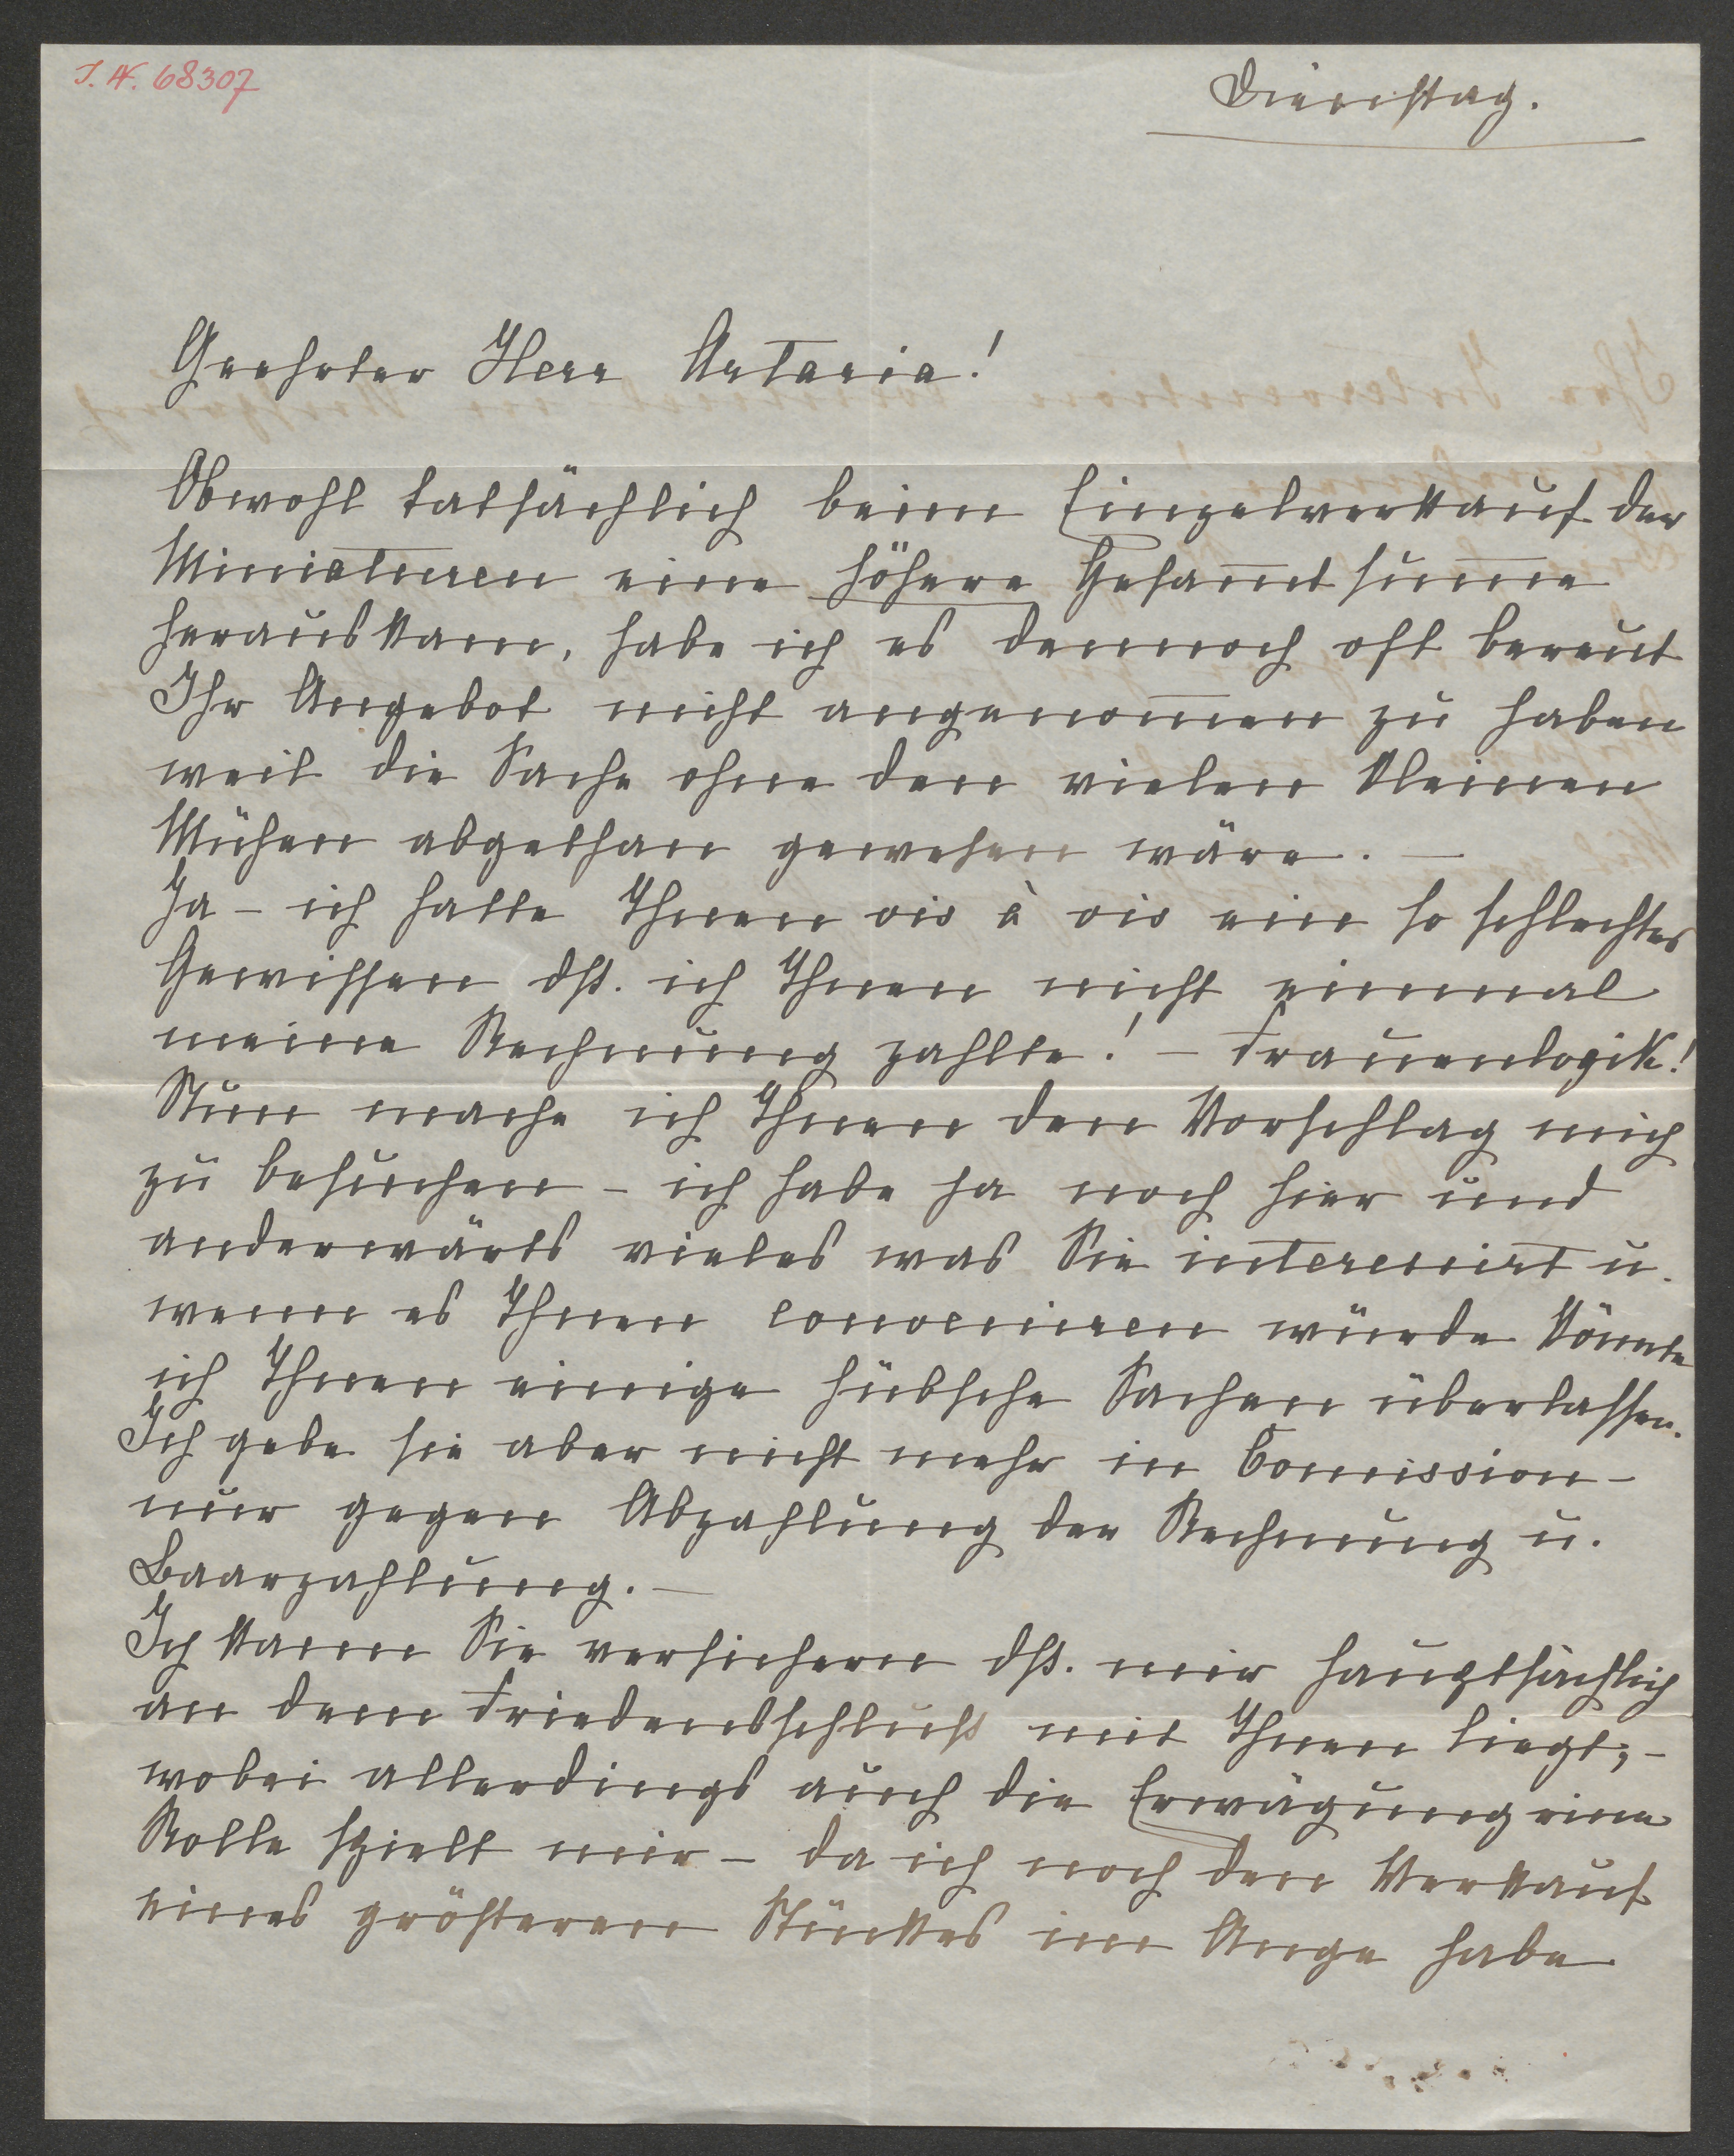 J.N. 68307
Dienstag.
Geehrter Herr Artaria!
Obwohl tatsächlich beim Einzelverkauf der
Miniaturen eine höhere Gesam̅tsum̅e
herauskam, habe ich es dennoch oft bereut
Ihr Angebot nicht angenom̅en zu haben
weil die Sache ohne den vielen kleinen
Mühen abgethan gewesen wäre. –
Ja – ich hatte Ihnen vis à vis ein so schlechtes
Gewissen dß. ich Ihnen nicht einmal
meine Rechnung zahlte! – Frauenlogik!
Nun mache ich Ihnen den Vorschlag mich
zu besuchen – ich habe ja noch hier und
anderwärts vieles was Sie interessirt u.
wenn es Ihnen conveniren würde könnte
ich Ihnen einige hübsche Sachen überlassen.
Ich gebe sie aber nicht mehr in Com̅ission –
nur gegen Abzahlung der Rechnung u.
Baarzahlung. –
Ich kann Sie versichern dß. mir hauptsächlich
an dem Friedensschluß mit Ihnen liegt; –
wobei allerdings auch die Erwägung eine
Rolle spielt mir – da ich noch den Verkauf
eines größeren Stückes im Auge habe